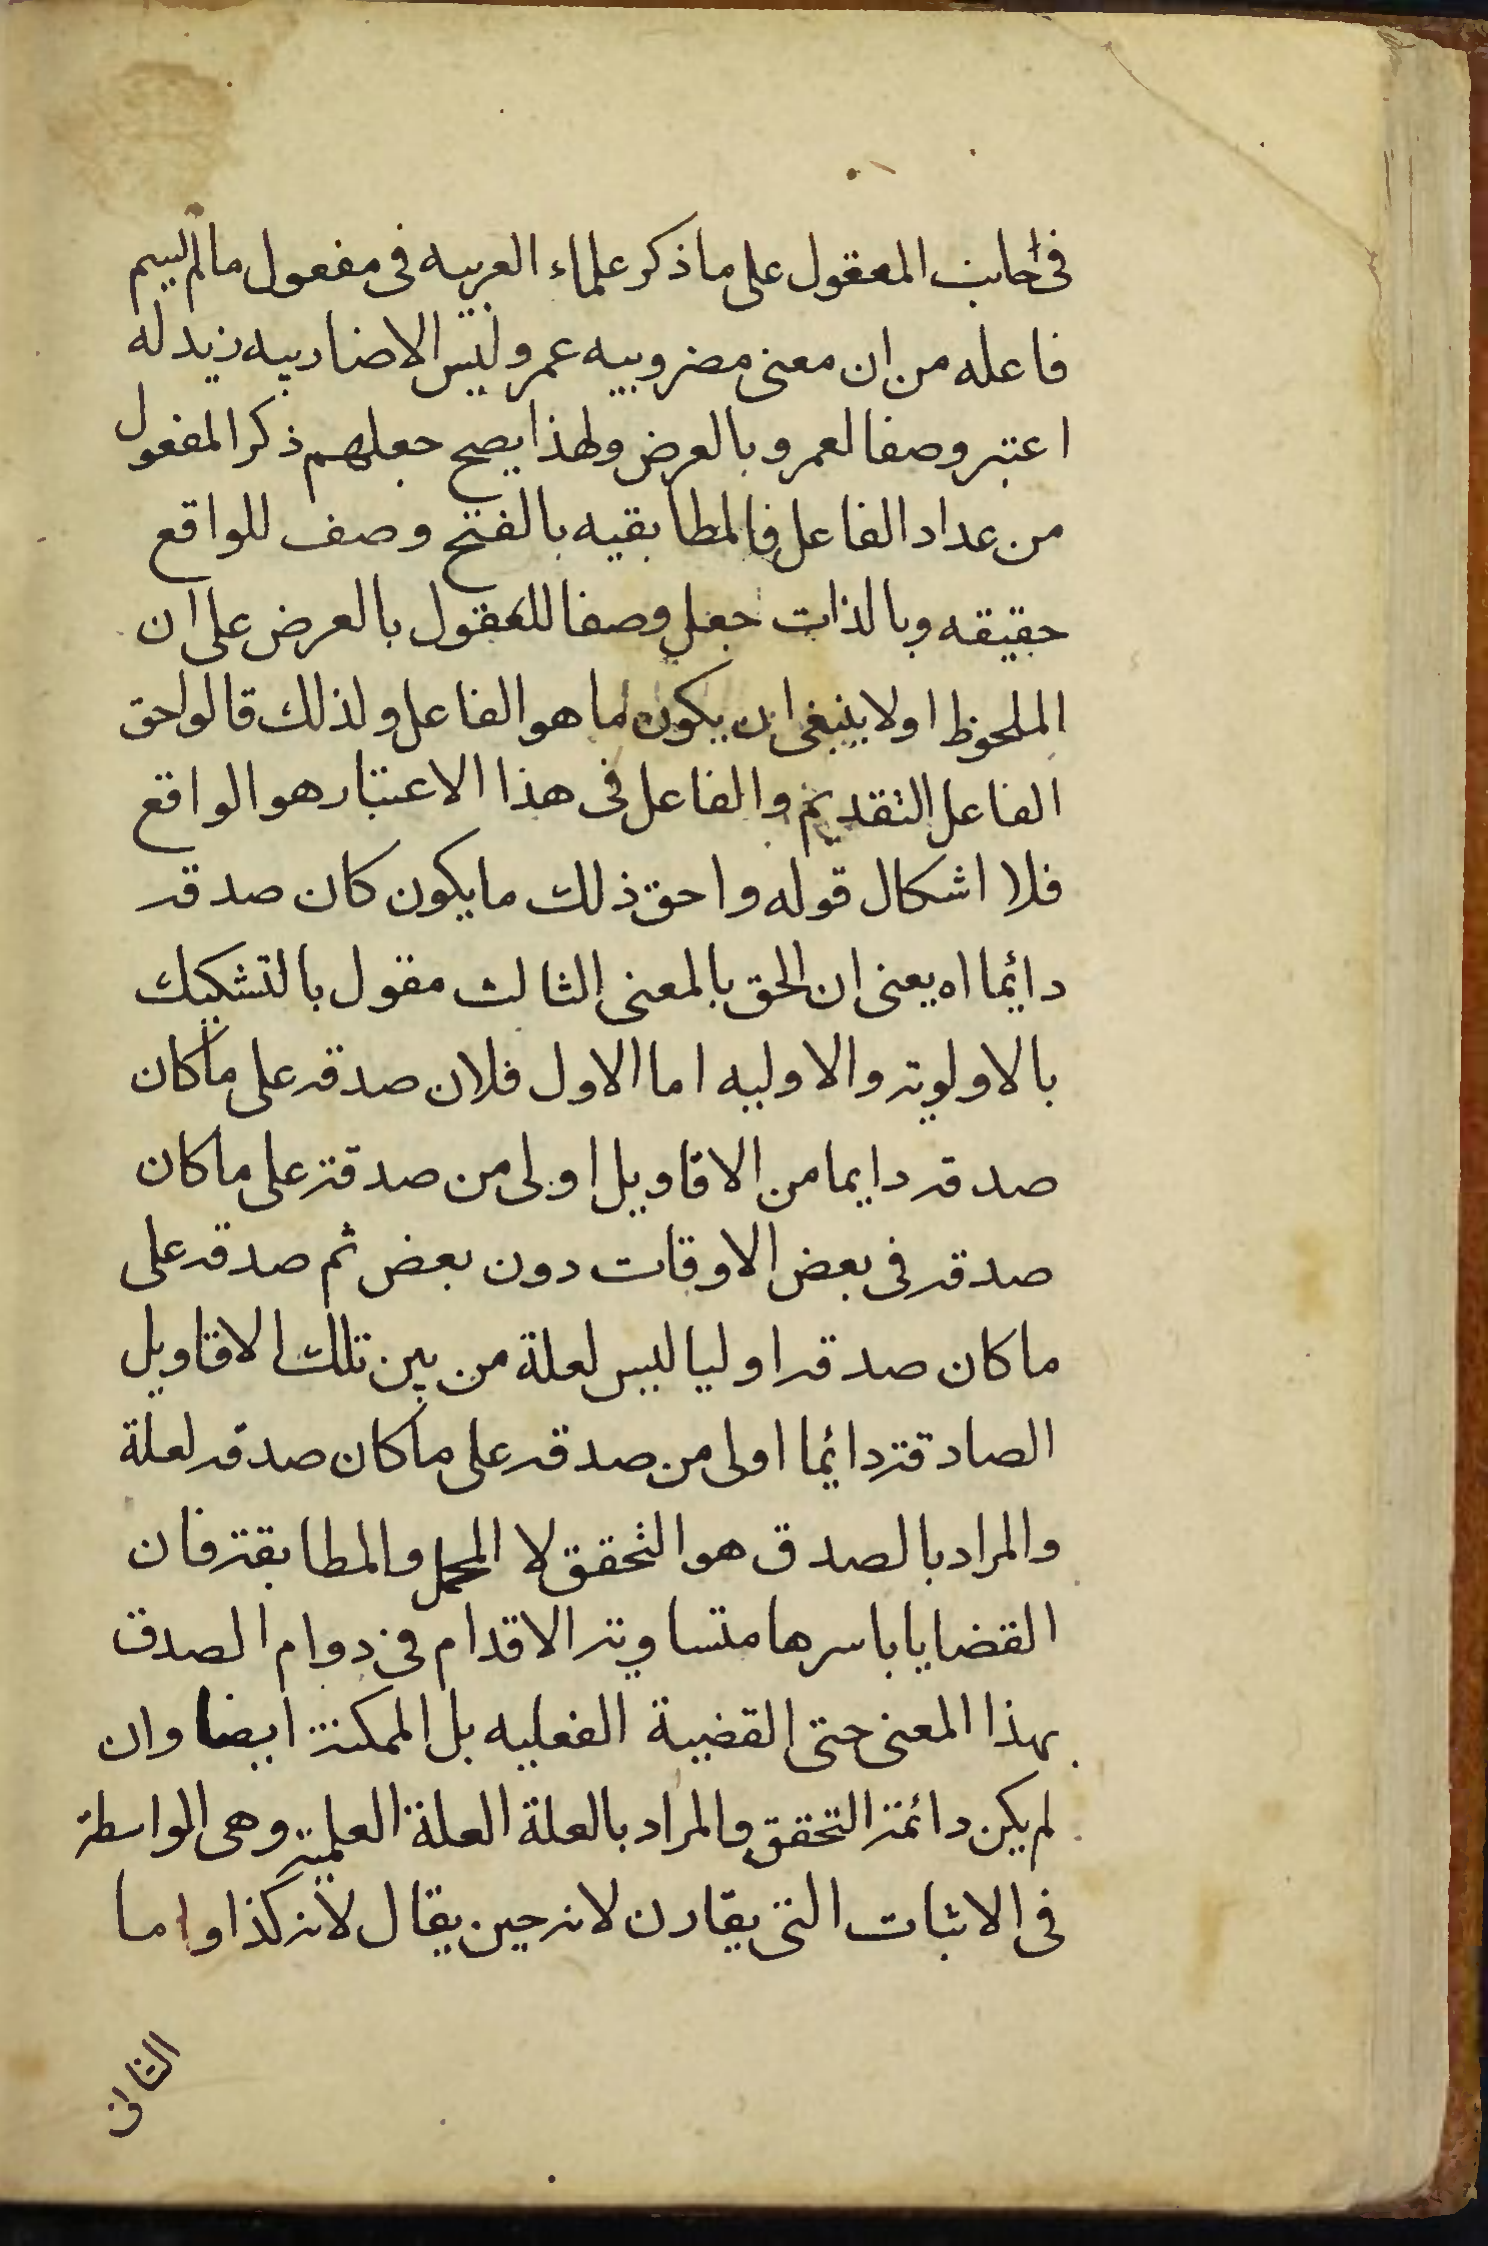 فى جانب المعقول على ما ذكر علماء العربيه فى مفعول مالم يسم
فاعله من ان معنى مضروبيه عمرو ليس الاضاربيه زيد له
اعتبر وصفا لعمرو بالعرض ولهذا يصح جعلهم ذكر المفعول
من عداد الفاعل فالمطابقيه بالفتح وصف للواقع
حقيقه وبالذات جعل وصفا للعقول بالعرض على ان
الملحوظ اولا ينبغى ان يكون ما هو الفاعل ولذلك قالوا حق
الفاعل التقديم والفاعل فى هذا الاعتبار هو الواقع
فلا اشكال قوله واحق ذلك ما يكون كان صدقه
دائما اه يعنى ان الحق بالمعنى الثالث مقول بالتشكيك
بالاولوية والاوليه اما الاول فلان صدقه على ما كان
صدقه دايما من الاقاويل اولى من صدقة على ما كان
صدقه فى بعض الاوقات دون بعض ثم صدقه على
ما كان صدقه اوليا ليس لعلة من بين تلك الاقاويل
الصادقة دائما اولى من صدقه على ما كان صدقه لعلة
والمراد بالصدق هو التحقق لا المحمل والمطابقة فان
القضايا باسرها متساوية الاقدام فى دوام الصدق
بهذا المعنى حتى القضية الفعليه بل الممكنة ايضا وان
لم يكن دائمة التحقق والمراد بالعلة العلة العلمية وهى الواسطة
فى الاثبات التى يقارن لانه حين يقال لانه كذا واما
الثانى